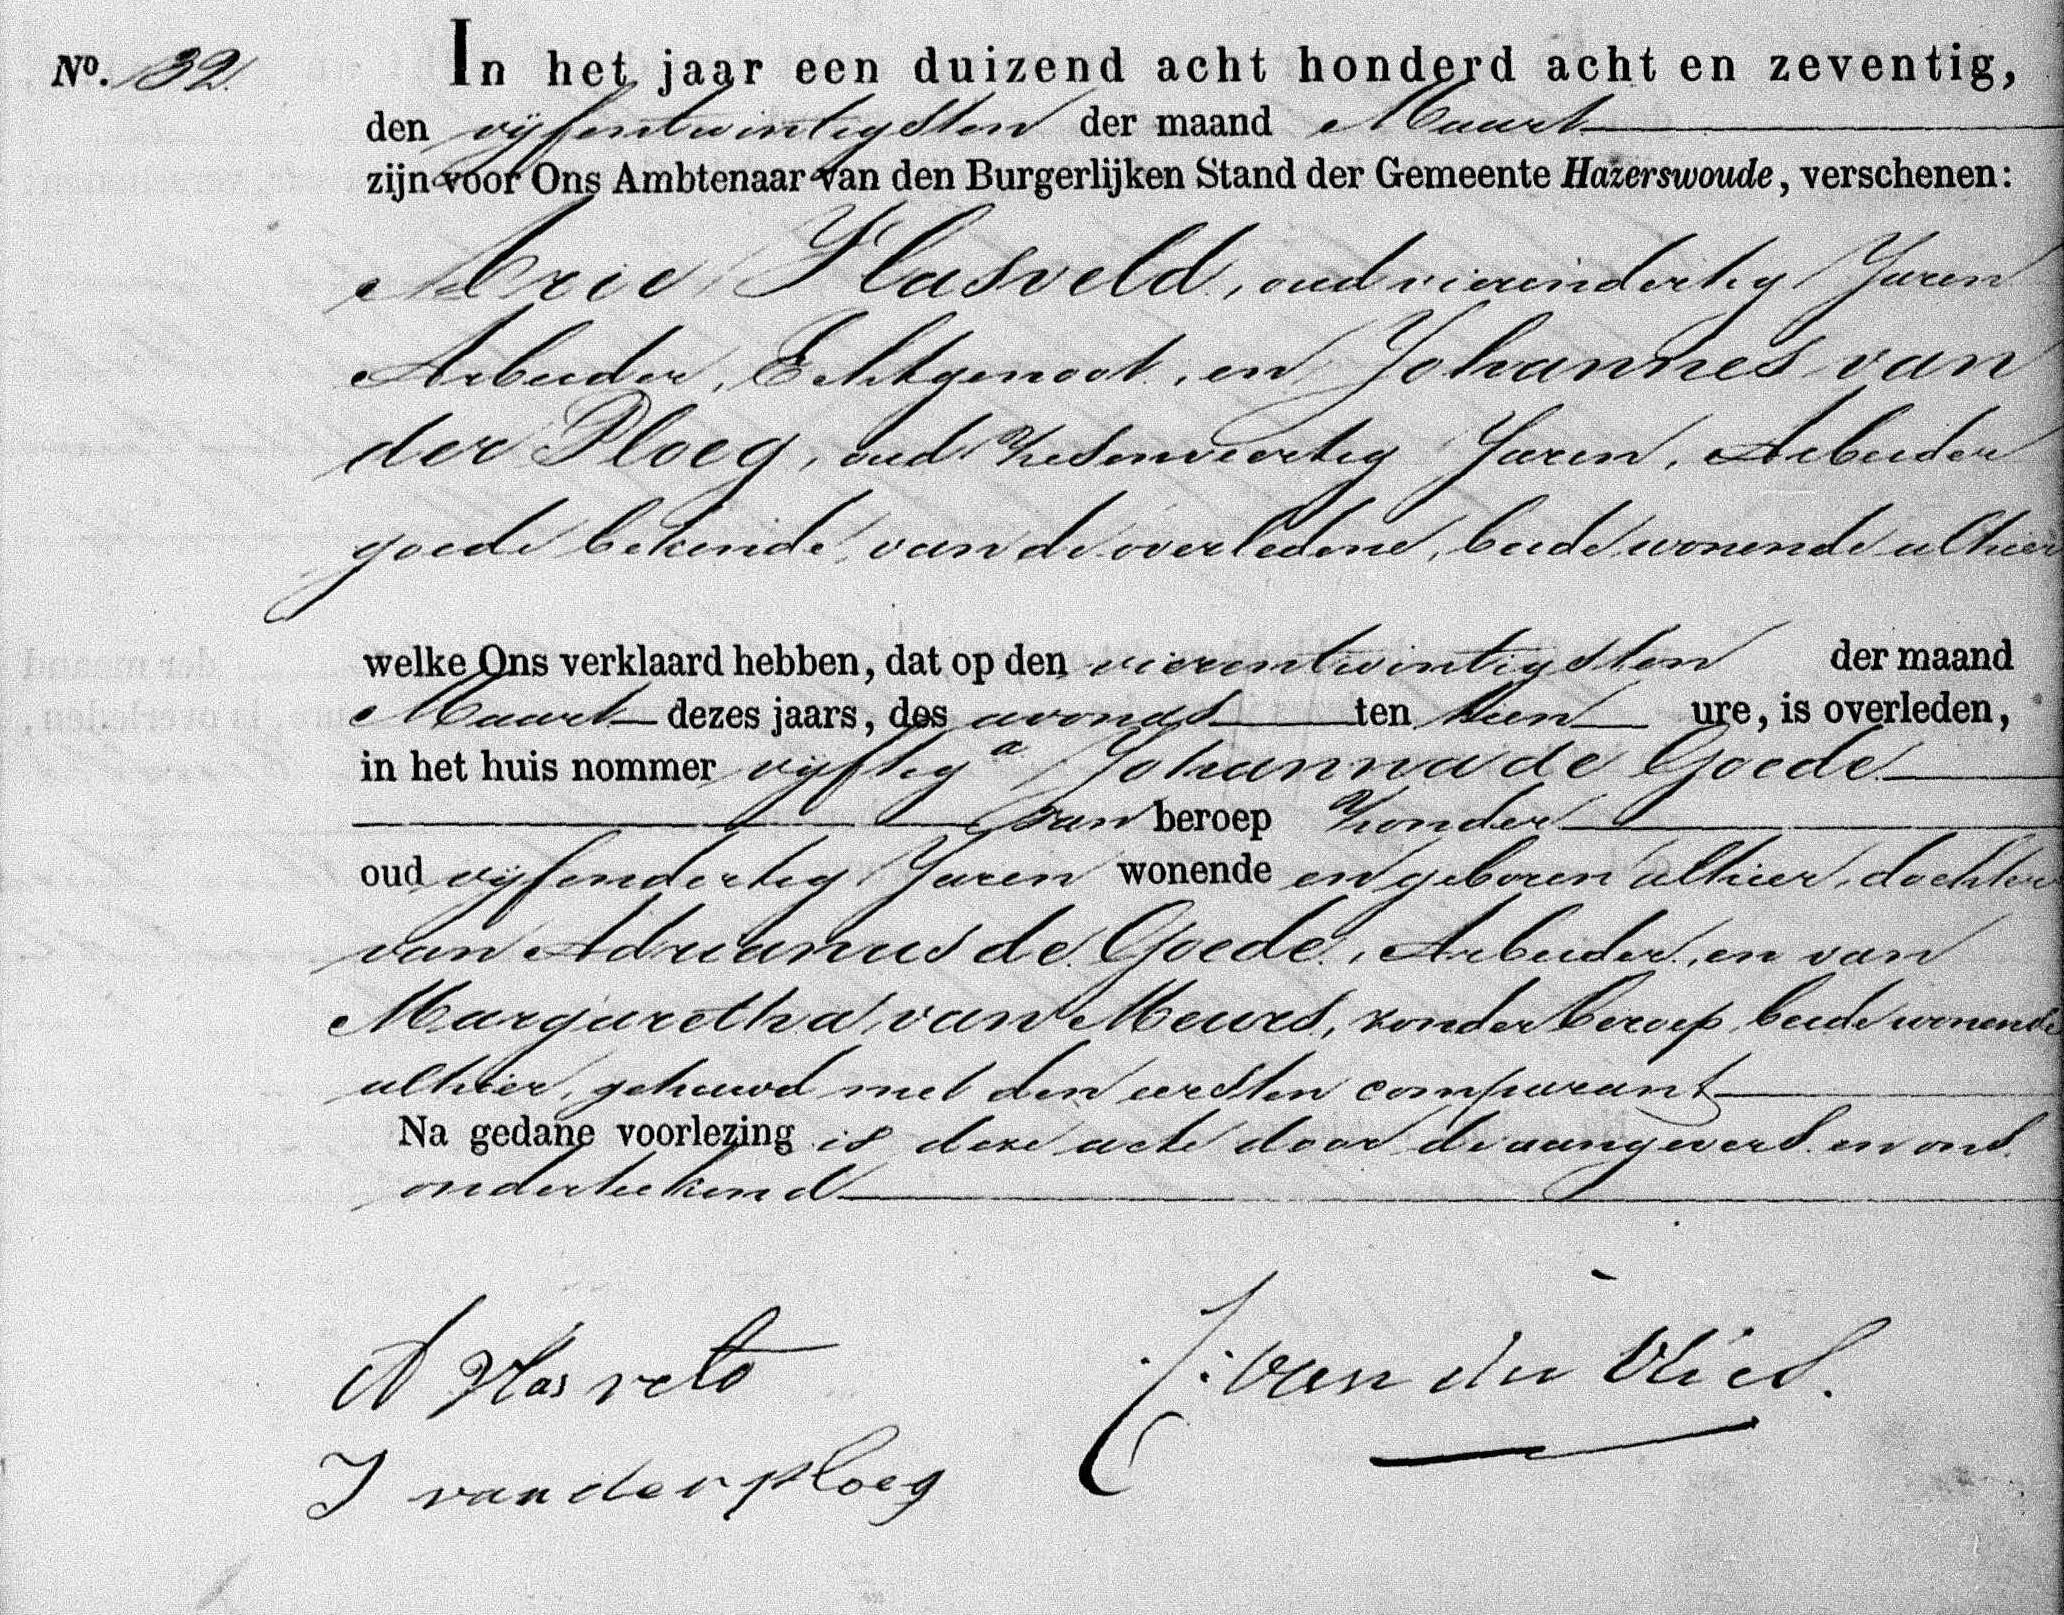 No. 32.
In het jaar een duizend acht honderd acht en zeventig,
den vijfentwintigsten der maand Maart
zijn voor Ons Ambtenaar van den Burgerlijken Stand der Gemeente Hazerswoude, verschenen:
Arie Vlasveld, oud vierendertig Jaren
Arbeider, Echtgenoot, en Johannes van
der Ploeg, oud Zesenveertig Jaren, Arbeider
goede bekende van de overledene, beide wonende alhier
welke Ons verklaard hebben, dat op den vierentwintigsten der maand
Maart dezes jaars, des avonds ten tien ure, is overleden,
in het huis nommer vijftig a Johanna de Goede
van beroep Zonder
oud vijfendertig Jaren wonende en geboren alhier, dochter
van Adrianus de Goede, Arbeider, en van
Margaretha van Meurs, zonder beroep, beide wonende
alhier, gehuwd met den eersten comparant
Na gedane voorlezing is deze acte door de aangevers en ons
onderteekend
A Vlasveld
J. van der Vlies.
J van der ploeg